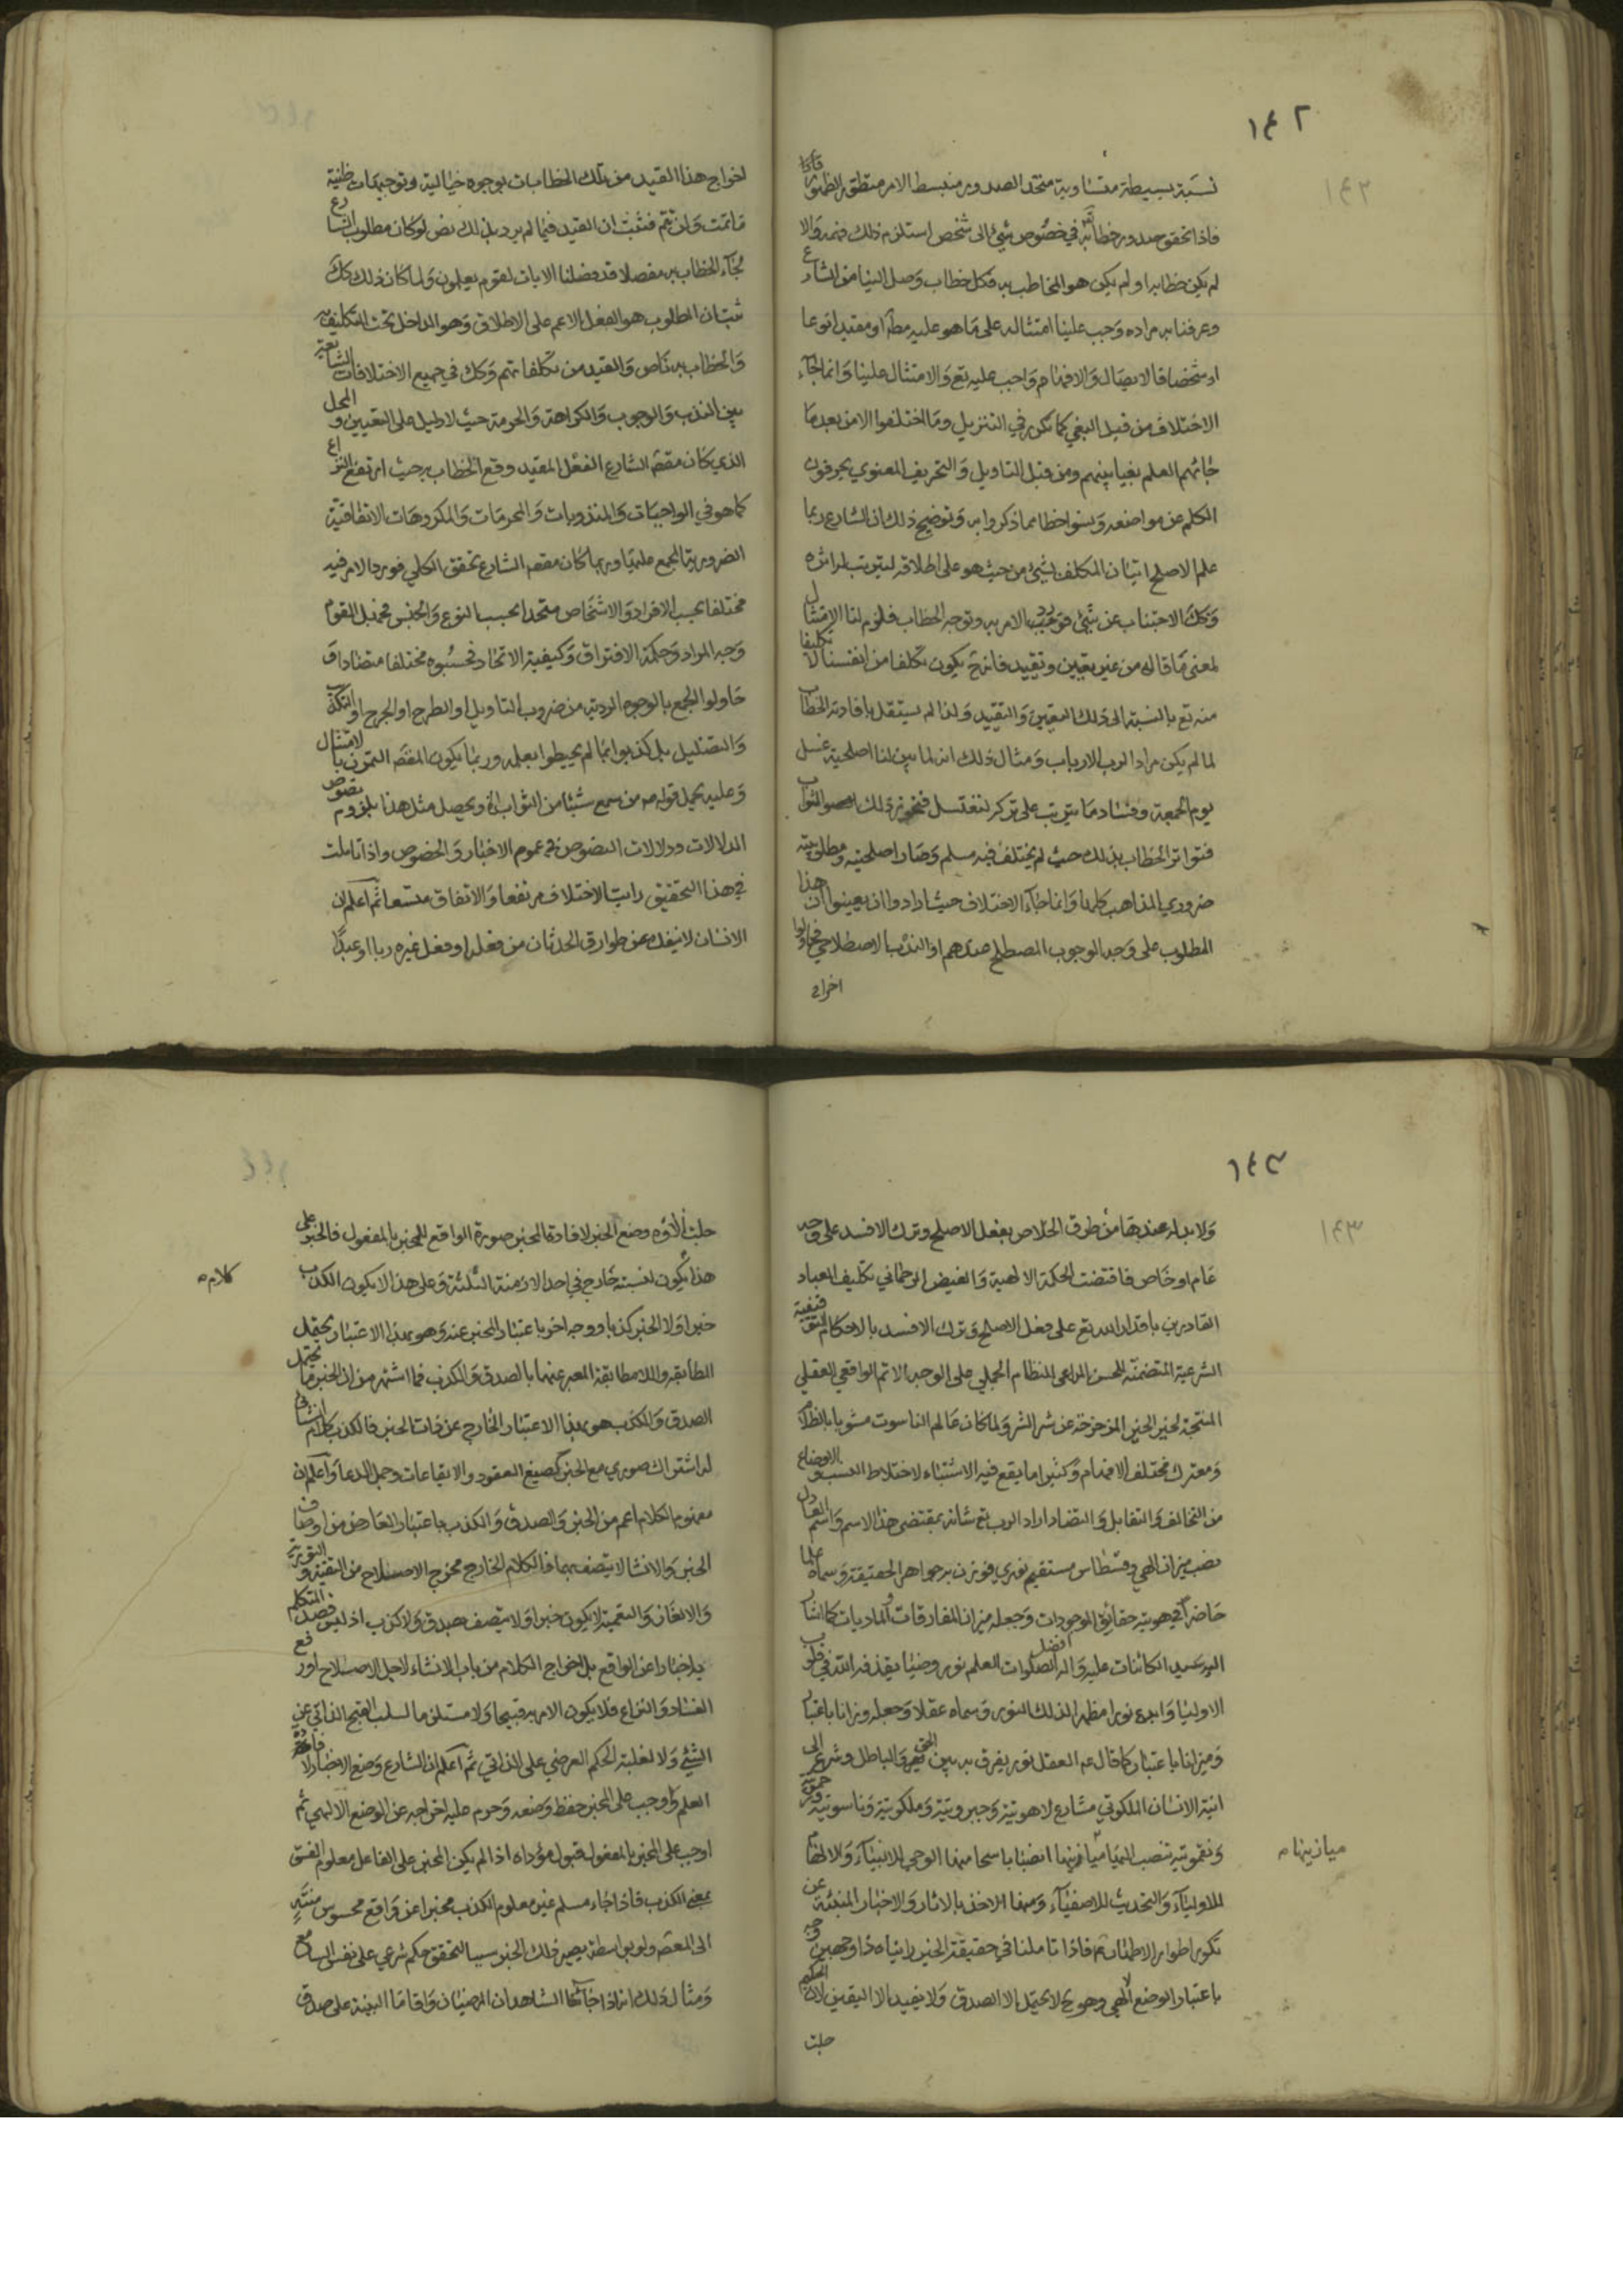 ١٤٢
نسبة بسيطة متساوية متحد الصدور منبسط الامر منطلق الظهور فاذا
فاذا تحقق صدور خطابه في خصوص شيئ الى شخص استلزم ذلك فهمه والا
لم يكن خطابا او لم يكن هو المخاطب به فكل خطاب وصل الينا من الشارع
وعرفنا به مراده وجب علينا امتثاله على ما هو عليه مطلقا او مقيدا نوعا
او شخصا فالايصال والافهام واجب عليه تع والامتثال علينا وانما جآء
الاختلاف من قبل البغي كما تكرر في التنزيل وما اختلفوا الا من بعد ما
جائهم العلم بغيا بينهم ومن قبل التاويل والتحريف المعنوي يحرفون
الكلم عن مواضعه ونسوا حظا مما ذكروا به وتوضيح ذلك ان الشارع ربما
علم الاصلح اتيان المكلف بشيئ من حيث هو على اطلاقه ليترتب اثره
وكك الاجتناب عن شيئ فورد الامر به وتوجه الخطاب فلزم لنا الامتثال
لمعنى ما قاله من غير تعيين وتقييد فانه ح يكون تكلفا من انفسنا لا تكليفا
منه تع بالنسبة الى ذلك التعيين والتقييد ولذا لم يستقل بافادته الخطاب
لما لم يكن مراد الرب الارباب ومثال ذلك انه لما بين لنا اصلحية غسل
يوم الجمعة وفساد ما يترتب على تركه لنغتسل فنحوز ذلك الثواب
فتواتر الخطاب بذلك حيث لم يختلف فيه مسلم وصار اصلحيته ومطلوبيته
ضروري المذاهب كلها وانما جآء الاختلاف حيث ارادوا ان يعينوا ان هذا
المطلوب على وجه الوجوب المصطلح عندهم او الندب الاصطلاحي فحاولوا
اخراج
اخراج هذا القيد من تلك الخطابات بوجوه خيالية وتوجيهات ظنية
ما تمت ولن تتم فثبت ان القيد فيما لم يرد بذلك نص لو كان مطلوب الشارع
لجآء الخطاب به مفصلا قد فصلنا الايات لقوم يعلمون ولما كان ذلك كك
ثبت ان المطلوب هو الفعل الاعم على الاطلاق وهو الداخل تحت التكليف به
والخطاب به ناص والقيد من تكلفاتهم وكك في جميع الاختلافات الشايعة
بين الندب والوجوب والكراهة والحرمة حيث لا دليل على التعيين والمحل
الذي كان مقصد الشارع الفعل المقيد وقع الخطاب به حيث ارتفع النزاع
كما هو في الواجبات والمندوبات والمحرمات والمكروهات الاتفاقية
الضرورية المجمع عليها وربما كان مقصد الشارع تحقق الكلي فورد الامر فيه
مختلفا بحسب الافراد والاشخاص متحدا بحسب النوع والجنس فجهل القوم
وجه المراد وحكمة الافتراق وكيفية الاتحاد فحسبوه مختلفا متضادا ف
حاولوا الجمع بالوجوه الردية من ضروب التاويل او الطرح او الجرح او التكذيب
والتضليل بل كذبوا بما لم يحيطوا بعلمه وربما يكون المقصد التمرن بالامتثال
وعليه يحمل قوله ص من سمع شيئا من الثواب الخ ويحصل مثل هذا بلزوم
الدلالات ودلالات النصوص في عموم الاخبار والخصوص واذا تاملت
في هذا التحقيق رايت الاختلاف مرتفعا والاتفاق متسعا ثم اعلم ان
الانسان لا ينفك عن طوارق الحدثان من فعله او فعل غيره ربا او عبدا
١٤٣
ولا بد له عندها من طرق الخلاص بفعل الاصلح وترك الافسد على وجه
عام او خاص فاقتضت الحكمة الالهية والفيض الرحماني تكليف العباد
القادرين باقدار الله تع على فعل الاصلح وترك الافسد بالاحكام التوقيفية
الشرعية المتضمنة للحسن المراعى للنظام الجملي على الوجه الاتم الواقعي العقلي
المنتجة لخير الخير المزحزحة عن شر الشر ولما كان عالم الناسوت مشوبا بالظلام
ومعترك مختلف الافهام وكثيرا ما يقع فيه الاشتباه لاختلاط النسب والاوضاع
من التخالف والتقابل والتضاد اراد الرب تع شانه بمقتضى هذا الاسم واسم العادل
نصب ميزان الهي وقسطاس مستقيم نوري فوزن به جواهر الحقيقة وسماه علما
حاضرا في هوية حقائق الموجودات وجعله ميزان المفارقات والماديات كما اشار
اليه سيد الكائنات عليه واله افضل الصلوات العلم نور وضيا يقذفه الله في قلوب
الاوليا وابدع نورا مظهرا لذلك النور وسماه عقلا وجعله وزانا باعتبار
وميزانا باعتبار كما قال عم العقل نور يفرق به بين الحق والباطل وشرع الى
انية الانسان الملكوتي مشارع لاهوتية وجبروتية وملكوتية وناسوتية
تنصب المياه ميازينها انصبابا سحا منها الوحي للانبيآء والالهام
للاوليآء والتحديث للاصفيآء ومنها الاخذ بالاثار والاخبار المنبئة عن
تكور اطوار الاطمئنان فاذا تاملنا في حقيقة الخبر رايناه ذا وجهين وجه
باعتبار الوضع الالهي وهو ح لا يحتمل الا الصدق ولا يفيد الا اليقين لان الحكيم
جلت
ميازينها م
جلت الاؤه وضع الخبر لافادة المخبر صورة الواقع للمخبر بالمفعول فالخبر على
هذا يكون لنسبته خارج في احد الازمنة الثلثة وعلى هذا لا يكون الكذب
كلام م
خبرا ولا الخبر كذبا ووجه اخر باعتبار المخبر عنه وهو بهذا الاعتبار يحتمل
المطابقة واللامطابقة المعبر عنهما بالصدق والكذب فما اشتهر من ان الخبر ما يحتمل
الصدق والكذب هو بهذا الاعتبار الخارج عن ذات الخبر فالكذب كلام انشائي
له اشتراك صوري مع الخبر كصيغ العقود والايقاعات وجمل الدعا واعلم ان
مفهوم الكلام اعم من الخبر والصدق والكذب باعتبار العارض من اوصاف
الخبر والانشا لا يتصف بهما فالكلام الخارج مخرج الاصلاح من التقية والتورية
والالغاز والتعمية لا يكون خبرا ولا يتصف بصدق ولا كذب اذ ليس قصد المتكلم
به اخبارا عن الواقع بل اخراج الكلام من باب الانشاء لاجل الاصلاح او رفع
الفساد والنزاع فلا يكون الامر به قبيحا ولا مستلزما لسلب القبح الذاتي عن
الشيئ ولا لغلبة الحكم العرضي على الذاتي ثم اعلم ان الشارع وضع الاخبار لافادة
العلم واوجب على المخبر حفظ وضعه وحرم عليه اخراجه عن الوضع الالهي ثم
اوجب على المخبر بالمفعول قبول مؤداه اذا لم يكن المخبر على الفاعل معلوم الفسق
بمعنى الكذب فاذا جاء مسلم غير معلوم الكذب مخبرا عن واقع محسوس منته
الى المعصوم ولو بواسطة يصير ذلك الخبر سببا لتحقق حكم شرعي على نفس السامع
ومثال ذلك انه اذا جآء الشاهدان المرضيان واقاما البينة على صدق